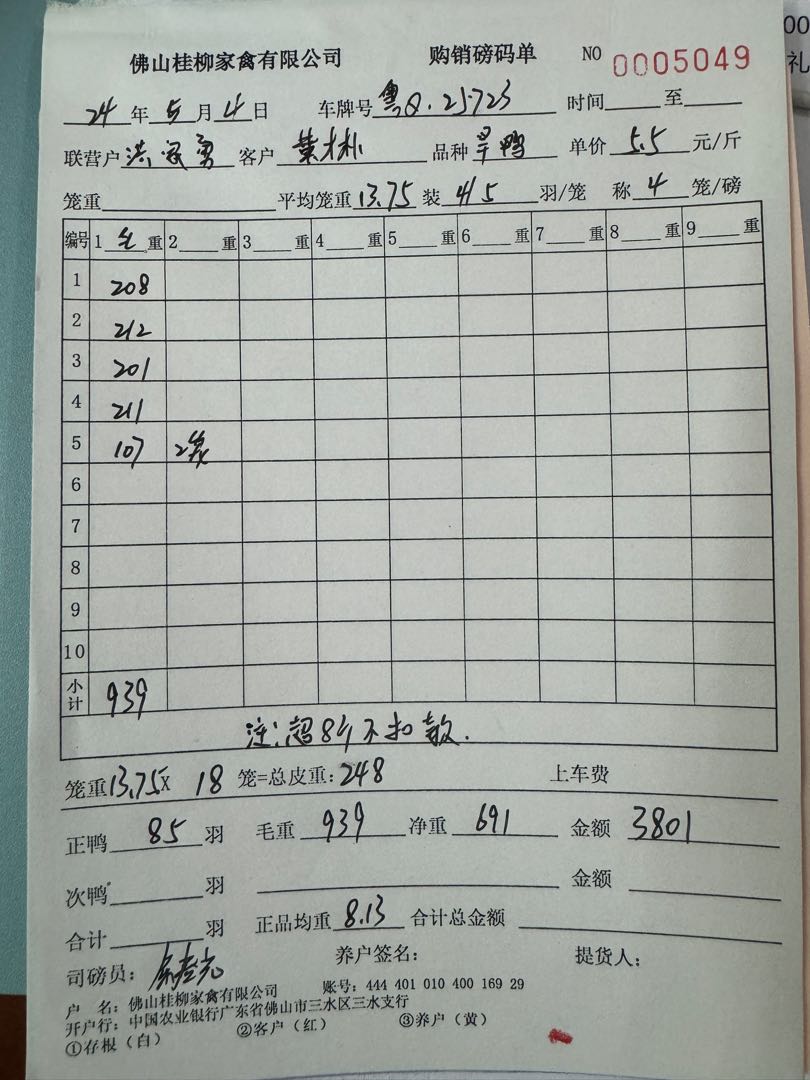 佛山桂柳家禽有限公司 购销磅码单 NO 0005049
24年5月4日 车牌号粤Q.25723 时间____至____
联营户 洪家勇 客户 叶林 品种 旱鸭 单价 5.5 元/斤
笼重____平均笼重13.75 装 4/5 羽/笼 称 4 笼/磅
编号 1 毛 重 2____重 3____重 4____重 5____重 6____重 7____重 8____重 9____重
1 208
2 212
3 201
4 211
5 107 2笼
6
7
8
9
10
小计 939
注:超8斤不扣款.
笼重13.75X 18 笼=总皮重:248 上车费
正鸭 85 羽 毛重 939 净重 691 金额 3801
次鸭____羽 ____ 金额____
合计____羽 正品均重 8.13 合计总金额____
司磅员: 养户签名: 提货人:
户 名:佛山桂柳家禽有限公司 账号:444 401 010 400 169 29
开户行:中国农业银行广东省佛山市三水区三水支行
①存根(白) ②客户(红) ③养户(黄)
00
礼